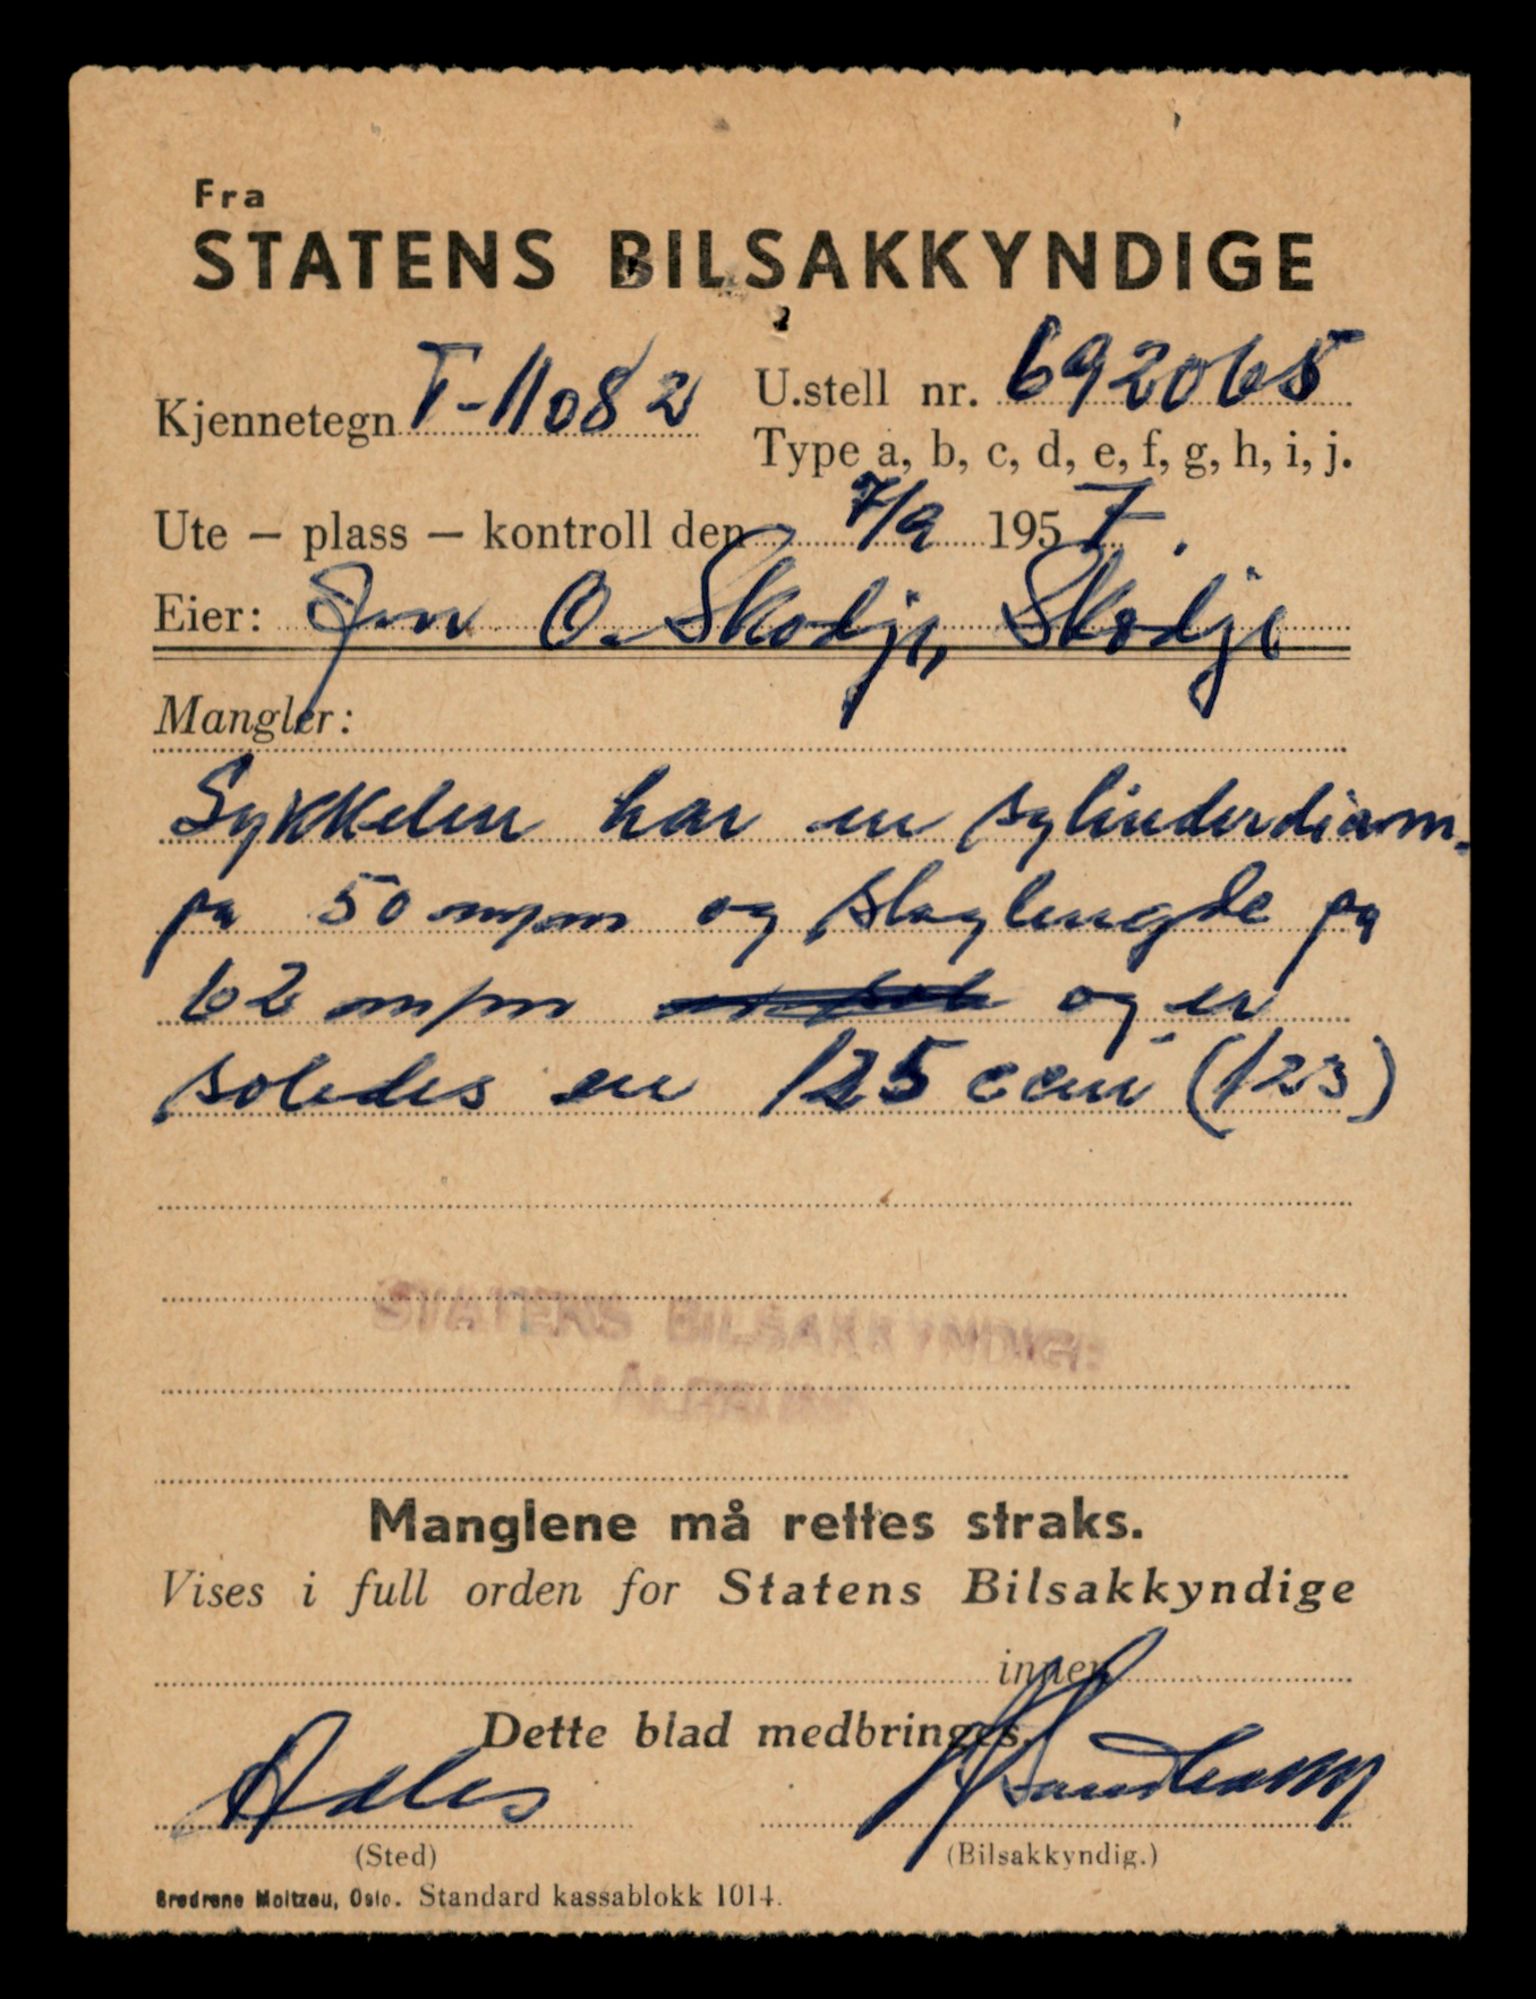 Fra
STATENS BILSAKKYNDIGE
Kjennetegn T-11082 U.stell nr. 692065
Type a, b, c, d, e, f, g, h, i, j.
Ute – plass – kontroll den 7/9 1957.
Eier: Jon O. Skodje, Skodje
Mangler:
Sykkelen har en sylinderdiam.
på 50 m/m og slaglengde på
62 m/m og er
således en 125 ccm (123)
STATENS BILSAKKYNDIGE
ÅLESUND
Manglene må rettes straks.
Vises i full orden for Statens Bilsakkyndige
innen
Dette blad medbringes.
(Sted) (Bilsakkyndig.)
Brødrene Moltzau, Oslo. Standard kassablokk 1014.